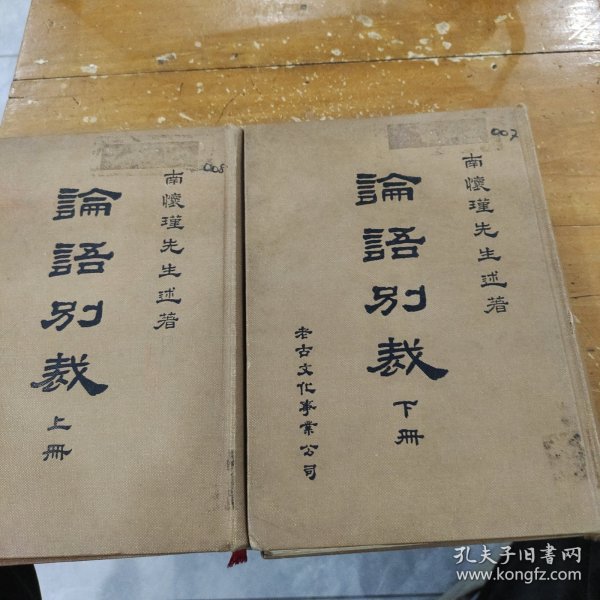 008
南懷瑾先生述著
論語別裁
上冊
007
南懷瑾先生述著
論語別裁
下冊
老古文化事業公司
孔夫子旧書网
www.kongfz.com